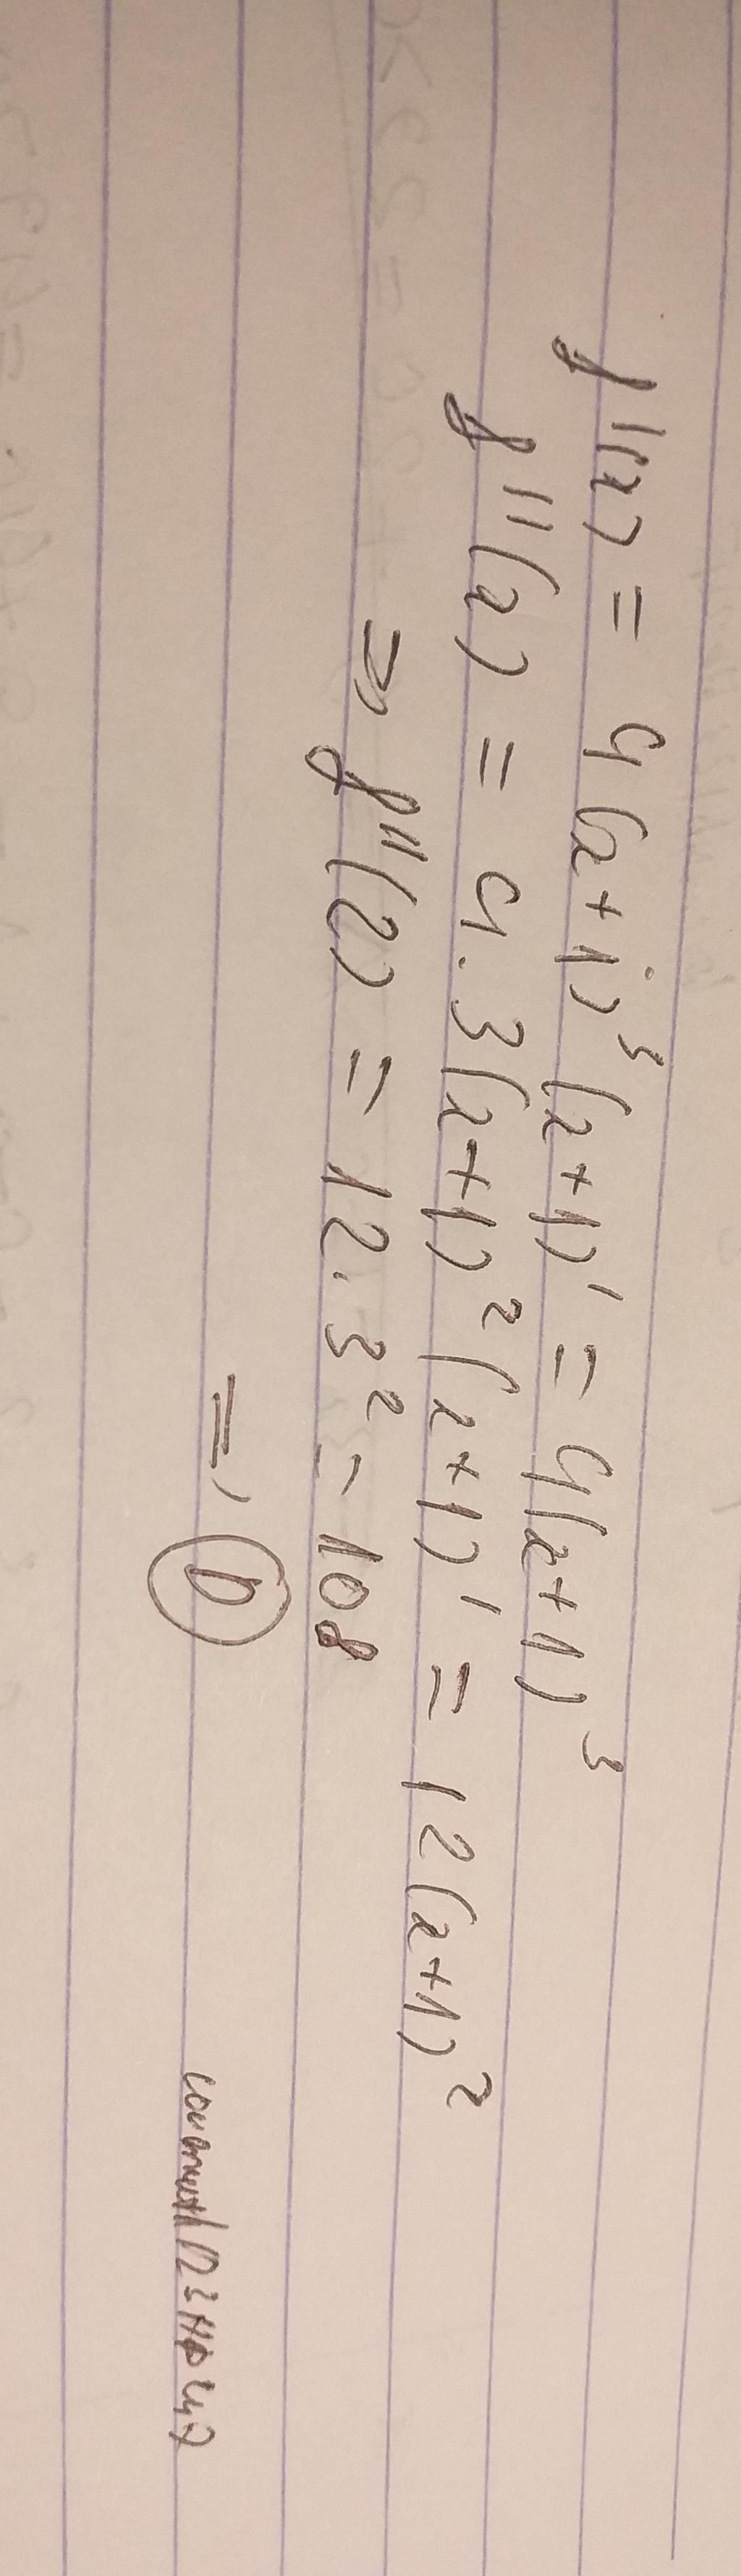 f'(x) = 4(x+1)³(x+1)' = 4(x+1)³
f''(x) = 4.3(x+1)²(x+1)' = 12(x+1)²
⇒ f''(2) = 12.3² = 108
⇒ D